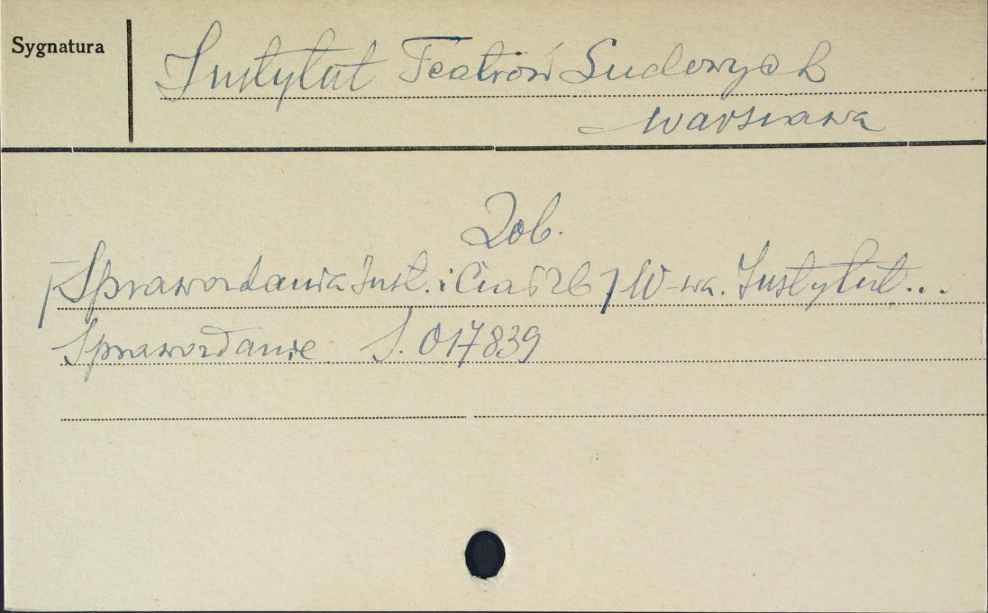 Sygnatura
Instytut Teatrów Ludowych
Warszawa
Zob.
[Sprawozdania Inst. i 76] W-wa. Instytut...
Sprawozdanie S. 017839